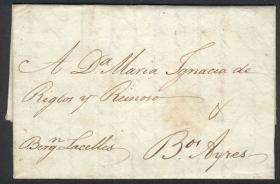 A Dª Maria Ignacia de
Riglos y Reinoso
Bergn Lacelles Bos Ayres